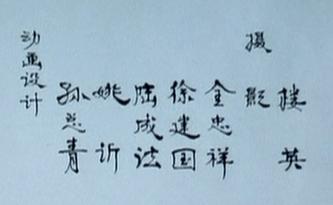 动画设计
孙总青
姚忻
陆成法
徐建国
全忠祥
摄影
楼英